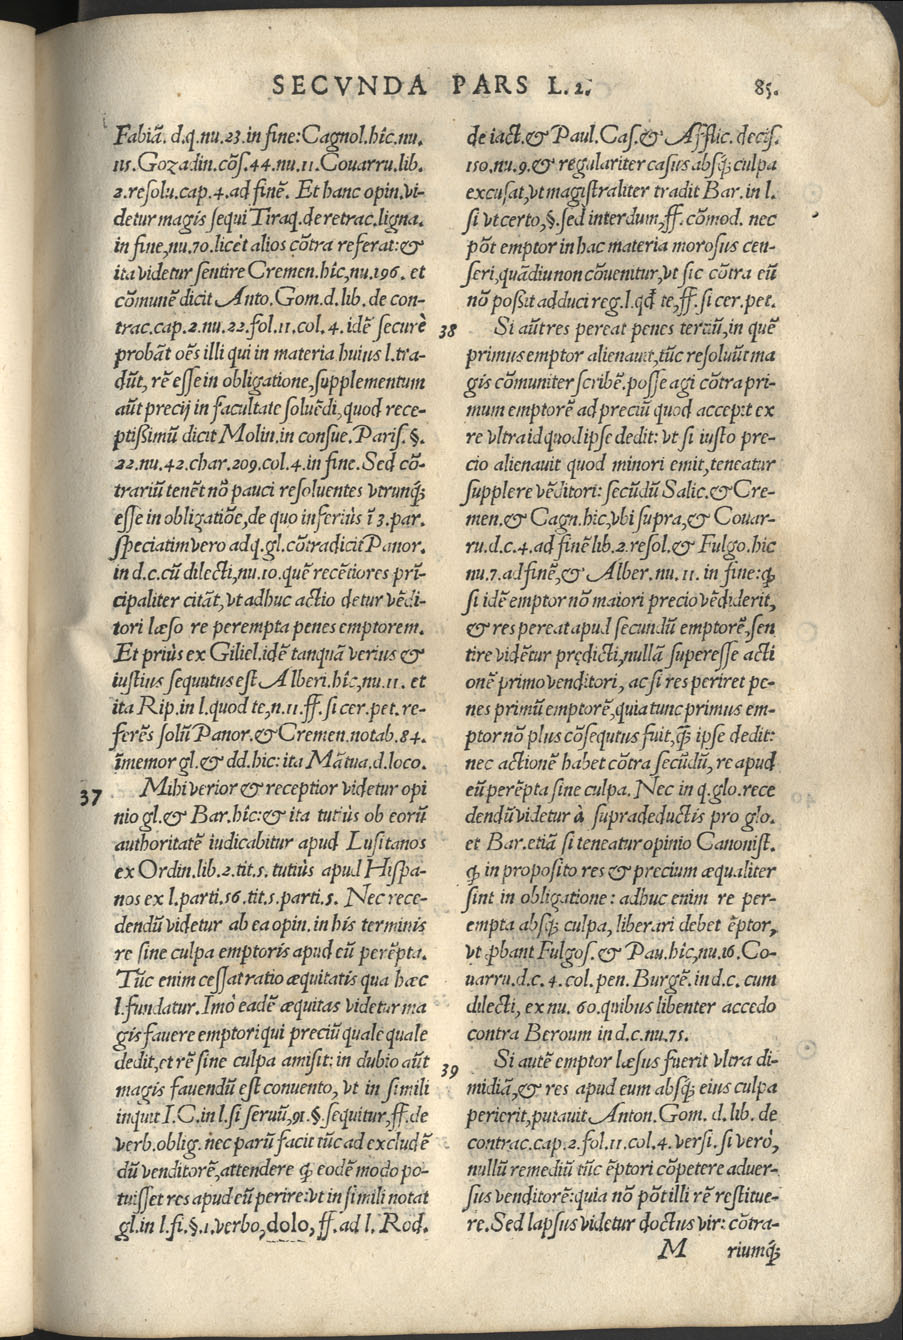 SECVNDA PARS L. 2.
85.
Fabiã. d.q.nu.23.in fine:Cagnol.hîc.nu.
115.Gozadin.cõs.44.nu.11.Couarru.lib.
2.resolu.cap.4.ad finẽ. Et hanc opin.vi-
detur magis sequi Tiraq.de retrac.ligna.
in fine,nu.70.licèt alios cõtra referat:&
ita videtur sentire Cremen.hîc,nu.196. et
cõmunẽ dicit Anto.Gom.d.lib. de con-
trac.cap.2.nu.22.fol.11.col.4.idẽ securè
probãt oẽs illi qui in materia huius l.tra-
dũt, rẽ esse in obligatione,supplementum
aũt precij in facultate soluẽdi,quod rece-
ptißimũ dicit Molin.in consue.Paris.§.
22.nu.42.char.209.col.4.in fine.Sed cõ-
trariũ tenẽt nõ pauci resoluentes vtrunq́;
esse in obligatiõe,de quo inferiùs ĩ 3.par.
speciatim vero ad q.gl.cõtradicit Panor.
in d.c.cũ dilecti,nu.10.quẽ recẽtiores prĩ-
cipaliter citãt,vt adhuc actio detur vẽdi-
tori læso re perempta penes emptorem.
Et priùs ex Giliel.idẽ tanquã verius &
iustius sequutus est Alberi.hîc,nu.11. et
ita Rip.in l.quod te,n.11.ff.si cer.pet.re-
ferẽs solũ Panor.& Cremen.notab.84.
ĩmemor gl.& dd.hic:ita Mãtua.d.loco.
37 Mihi verior & receptior videtur opi
nio gl.& Bar.hîc:& ita tutiùs ob eorũ
authoritatẽ iudicabitur apud Lusitanos
ex Ordin.lib.2.tit.5. tutiùs apud Hispa-
nos ex l.parti.56.tit.5.parti.5. Nec rece-
dendũ videtur ab ea opin.in his terminis
re sine culpa emptoris apud eũ perẽpta.
Tũc enim cessat ratio æquitatis qua hæc
l.fundatur.Imò eadẽ æquitas videtur ma
gis fauere emptori qui preciũ quale quale
dedit,et rẽ sine culpa amisit: in dubio aũt
magis fauendũ est conuento, vt in simili
inquit I.C.in l.si seruũ,91.§.sequitur,ff.de
verb.oblig.nec parũ facit tũc ad excludẽ
dũ venditorẽ,attendere q́; eodẽ modo po-
tuisset res apud eũ perire:vt in simili notat
gl.in l.fi.§.1.verbo,dolo, ff.ad l. Rod.
de iact.& Paul.Cas.& Afflic. decis.
150.nu.9.& regulariter casus absq́; culpa
excusat,vt magistraliter tradit Bar.in l.
si vt certo,§.sed interdum,ff.cõmod. nec
põt emptor in hac materia morosus cen-
seri,quãdiu non cõuenitur,vt sic cõtra eũ
nõ poßit adduci reg.l.qđ te,ff.si cer.pet.
38 Si aũt res pereat penes tertiũ,in quẽ
primus emptor alienauit,tũc resoluũt ma
gis cõmuniter scribẽ.posse agi cõtra pri-
mum emptorẽ ad preciũ quod accepit ex
re vltra id quod ipse dedit: vt si iusto pre-
cio alienauit quod minori emit,teneatur
supplere vẽditori: secũdũ Salic.& Cre-
men.& Cagn.hîc,vbi supra,& Couar-
ru.d.c.4.ad finẽ lib.2.resol.& Fulgo.hîc
nu.7.ad finẽ,& Alber.nu.11. in fine:q́;
si idẽ emptor nõ maiori precio vẽdiderit,
& res pereat apud secundũ emptorẽ,sen
tire vidẽtur prędicti,nullã superesse acti
onẽ primo venditori, ac si res periret pe-
nes primũ emptorẽ,quia tunc primus em-
ptor nõ plus cõsequtus fuit,q̃ ipse dedit:
nec actionẽ habet cõtra secũdũ,re apud
eũ perẽpta sine culpa. Nec in q.glo.rece
dendũ videtur à supradeductis pro glo.
et Bar.etiã si teneatur opinio Canonist.
q́; in proposito res & precium æqualiter
sint in obligatione: adhuc enim re per-
empta absq́; culpa, liberari debet ẽptor,
vt ꝓbant Fulgos.& Pau.hîc,nu.16.Co-
uarru.d.c.4.col.pen.Burgẽ.in d.c. cum
dilecti, ex nu. 60.quibus libenter accedo
contra Beroum in d.c.nu.75.
39 Si autẽ emptor læsus fuerit vltra di-
midiã,& res apud eum absq́; eius culpa
perierit,putauit Anton.Gom. d.lib. de
contrac.cap.2.fol.11.col.4.versi.si verò,
nullũ remediũ tũc ẽptori cõpetere aduer-
sus venditorẽ:quia nõ põt illi rẽ restitue-
re.Sed lapsus videtur doctus vir: cõtra-
M riumq́;